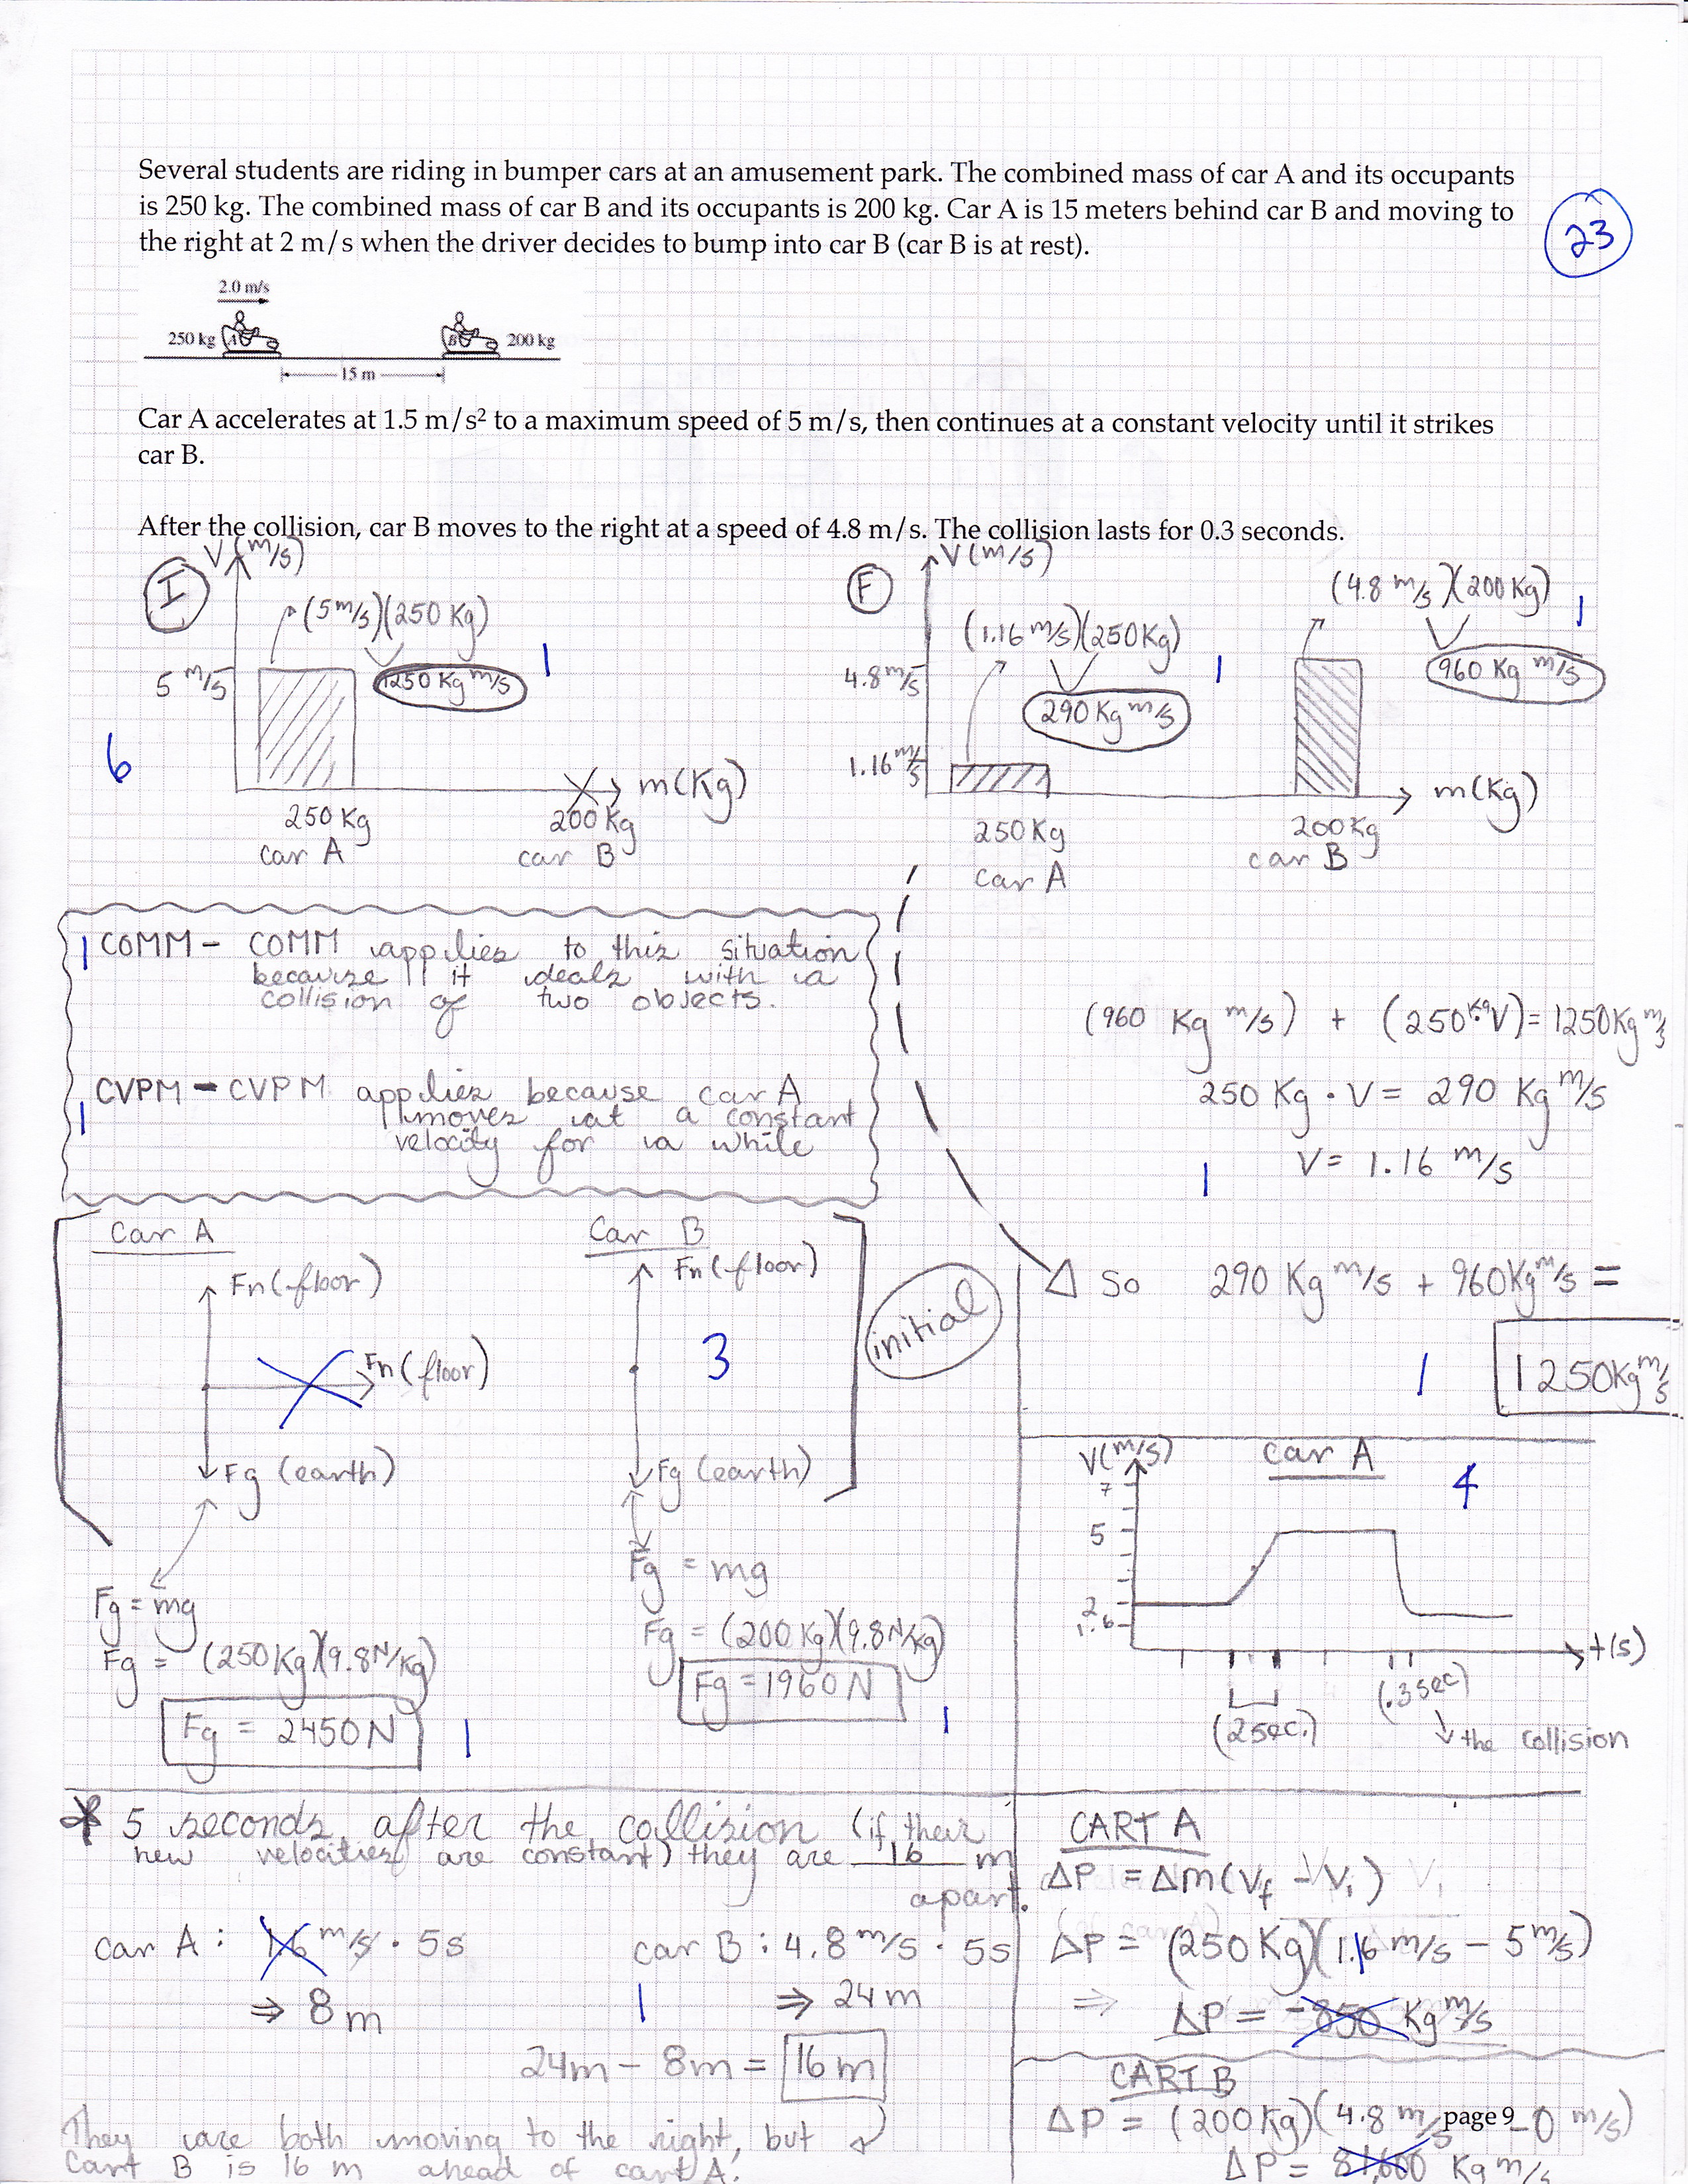 Several students are riding in bumper cars at an amusement park. The combined mass of car A and its occupants
is 250 kg. The combined mass of car B and its occupants is 200 kg. Car A is 15 meters behind car B and moving to
the right at 2 m/s when the driver decides to bump into car B (car B is at rest).
23
2.0 m/s
250 kg A B 200 kg
15 m
Car A accelerates at 1.5 m/s² to a maximum speed of 5 m/s, then continues at a constant velocity until it strikes
car B.
After the collision, car B moves to the right at a speed of 4.8 m/s. The collision lasts for 0.3 seconds.
I
V (m/s)
(5 m/s)(250 Kg)
5 m/s
1250 Kg m/s
1
6
m(Kg)
250 Kg
car A
200 Kg
car B
F
V (m/s)
(4.8 m/s)(200 Kg)
1
(1.16 m/s)(250 Kg)
960 Kg m/s
4.8 m/s
1
290 Kg m/s
1.16 m/s
m(Kg)
250 Kg
car A
200 Kg
car B
1 COMM - COMM applies to this situation
because it deals with a
collision of two objects.
CVPM - CVPM applies because car A
1 moves at a constant
velocity for a while
(960 Kg m/s) + (250 Kg·V) = 1250 Kg m/s
250 Kg · V = 290 Kg m/s
1 V = 1.16 m/s
Δ So 290 Kg m/s + 960 Kg m/s =
1 1250 Kg m/s
Car A
Fn (floor)
Fn (floor)
Fg (earth)
Fg = mg
Fg = (250 Kg)(9.8 N/Kg)
Fg = 2450 N 1
Car B
Fn (floor)
3
initial
Fg (earth)
Fg = mg
Fg = (200 Kg)(9.8 N/Kg)
Fg = 1960 N
1
V (m/s) car A
4
7
5
2
1.6
t (s)
(2 sec.)
(.3 sec)
↓ the collision
* 5 seconds after the collision (if their
new velocities are constant) they are 16 m
apart.
car A : 1.6 m/s · 5s
⇒ 8 m
car B : 4.8 m/s · 5s
1 ⇒ 24 m
24m - 8m = 16 m
They are both moving to the right, but
Cart B is 16 m ahead of cart A.
CART A
ΔP = Δm (Vf - Vi)
ΔP = (250 Kg)(1.16 m/s - 5 m/s)
⇒ ΔP = -850 Kg m/s
CART B
ΔP = (200 Kg)(4.8 m/s - 0 m/s)
page 9
ΔP = Kg m/s